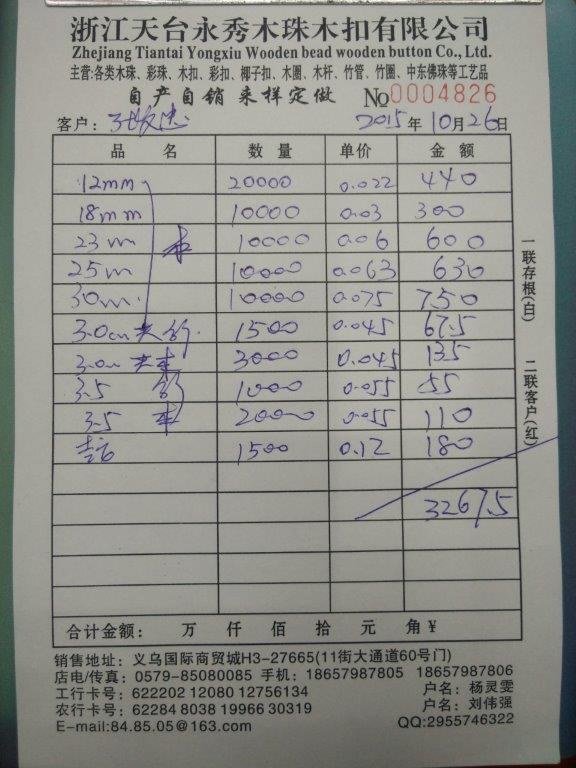 浙江天台永秀木珠木扣有限公司
Zhejiang Tiantai Yongxiu Wooden bead wooden button Co., Ltd.
主营:各类木珠、彩珠、木扣、彩扣、椰子扣、木圈、木杆、竹管、竹圈、中东佛珠等工艺品
自产自销 来样定做 No 0004826
客户: 2015年10月26日
品 名 数 量 单价 金 额
12mm 20000 0.022 440
18mm 10000 0.03 300
23m 本 10000 0.06 600
25m 10000 0.063 630
30m 10000 0.075 750
3.0cm 1500 0.045 67.5
3.0m 3000 0.045 135
3.5 1000 0.055 55
3.5 2000 0.055 110
1500 0.12 180
3267.5
合计金额: 万 仟 佰 拾 元 角 ¥
一联存根(白) 二联客户(红)
销售地址: 义乌国际商贸城H3-27665(11街大通道60号门)
店电/传真: 0579-85080085 手机: 18657987805 18657987806
工行卡号: 622202 12080 12756134 户名: 杨灵雯
农行卡号: 62284 8038 19966 30319 户名: 刘伟强
E-mail:84.85.05@163.com QQ:2955746322